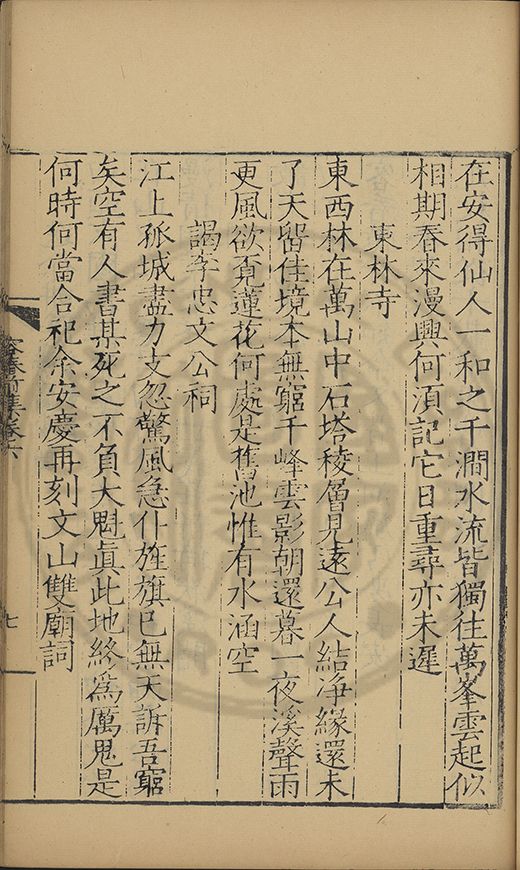 在安得仙人一和之千澗水流皆獨往萬峯雲起似
相期春來漫興何須記它日重尋亦未遲
東林寺
東西林在萬山中石塔稜層見遠公人結净緣還未
了天留佳境本無窮千峰雲影朝還暮一夜溪聲雨
更風欲覓蓮花何處是舊池惟有水涵空
謁李忠文公祠
江上孤城盡力支忽驚風急仆旌旗已無天訴吾窮
矣空有人書某死之不負大魁眞此地終爲厲鬼是
何時何當合祀余安慶再刻文山雙廟詞
容春前集卷六
七